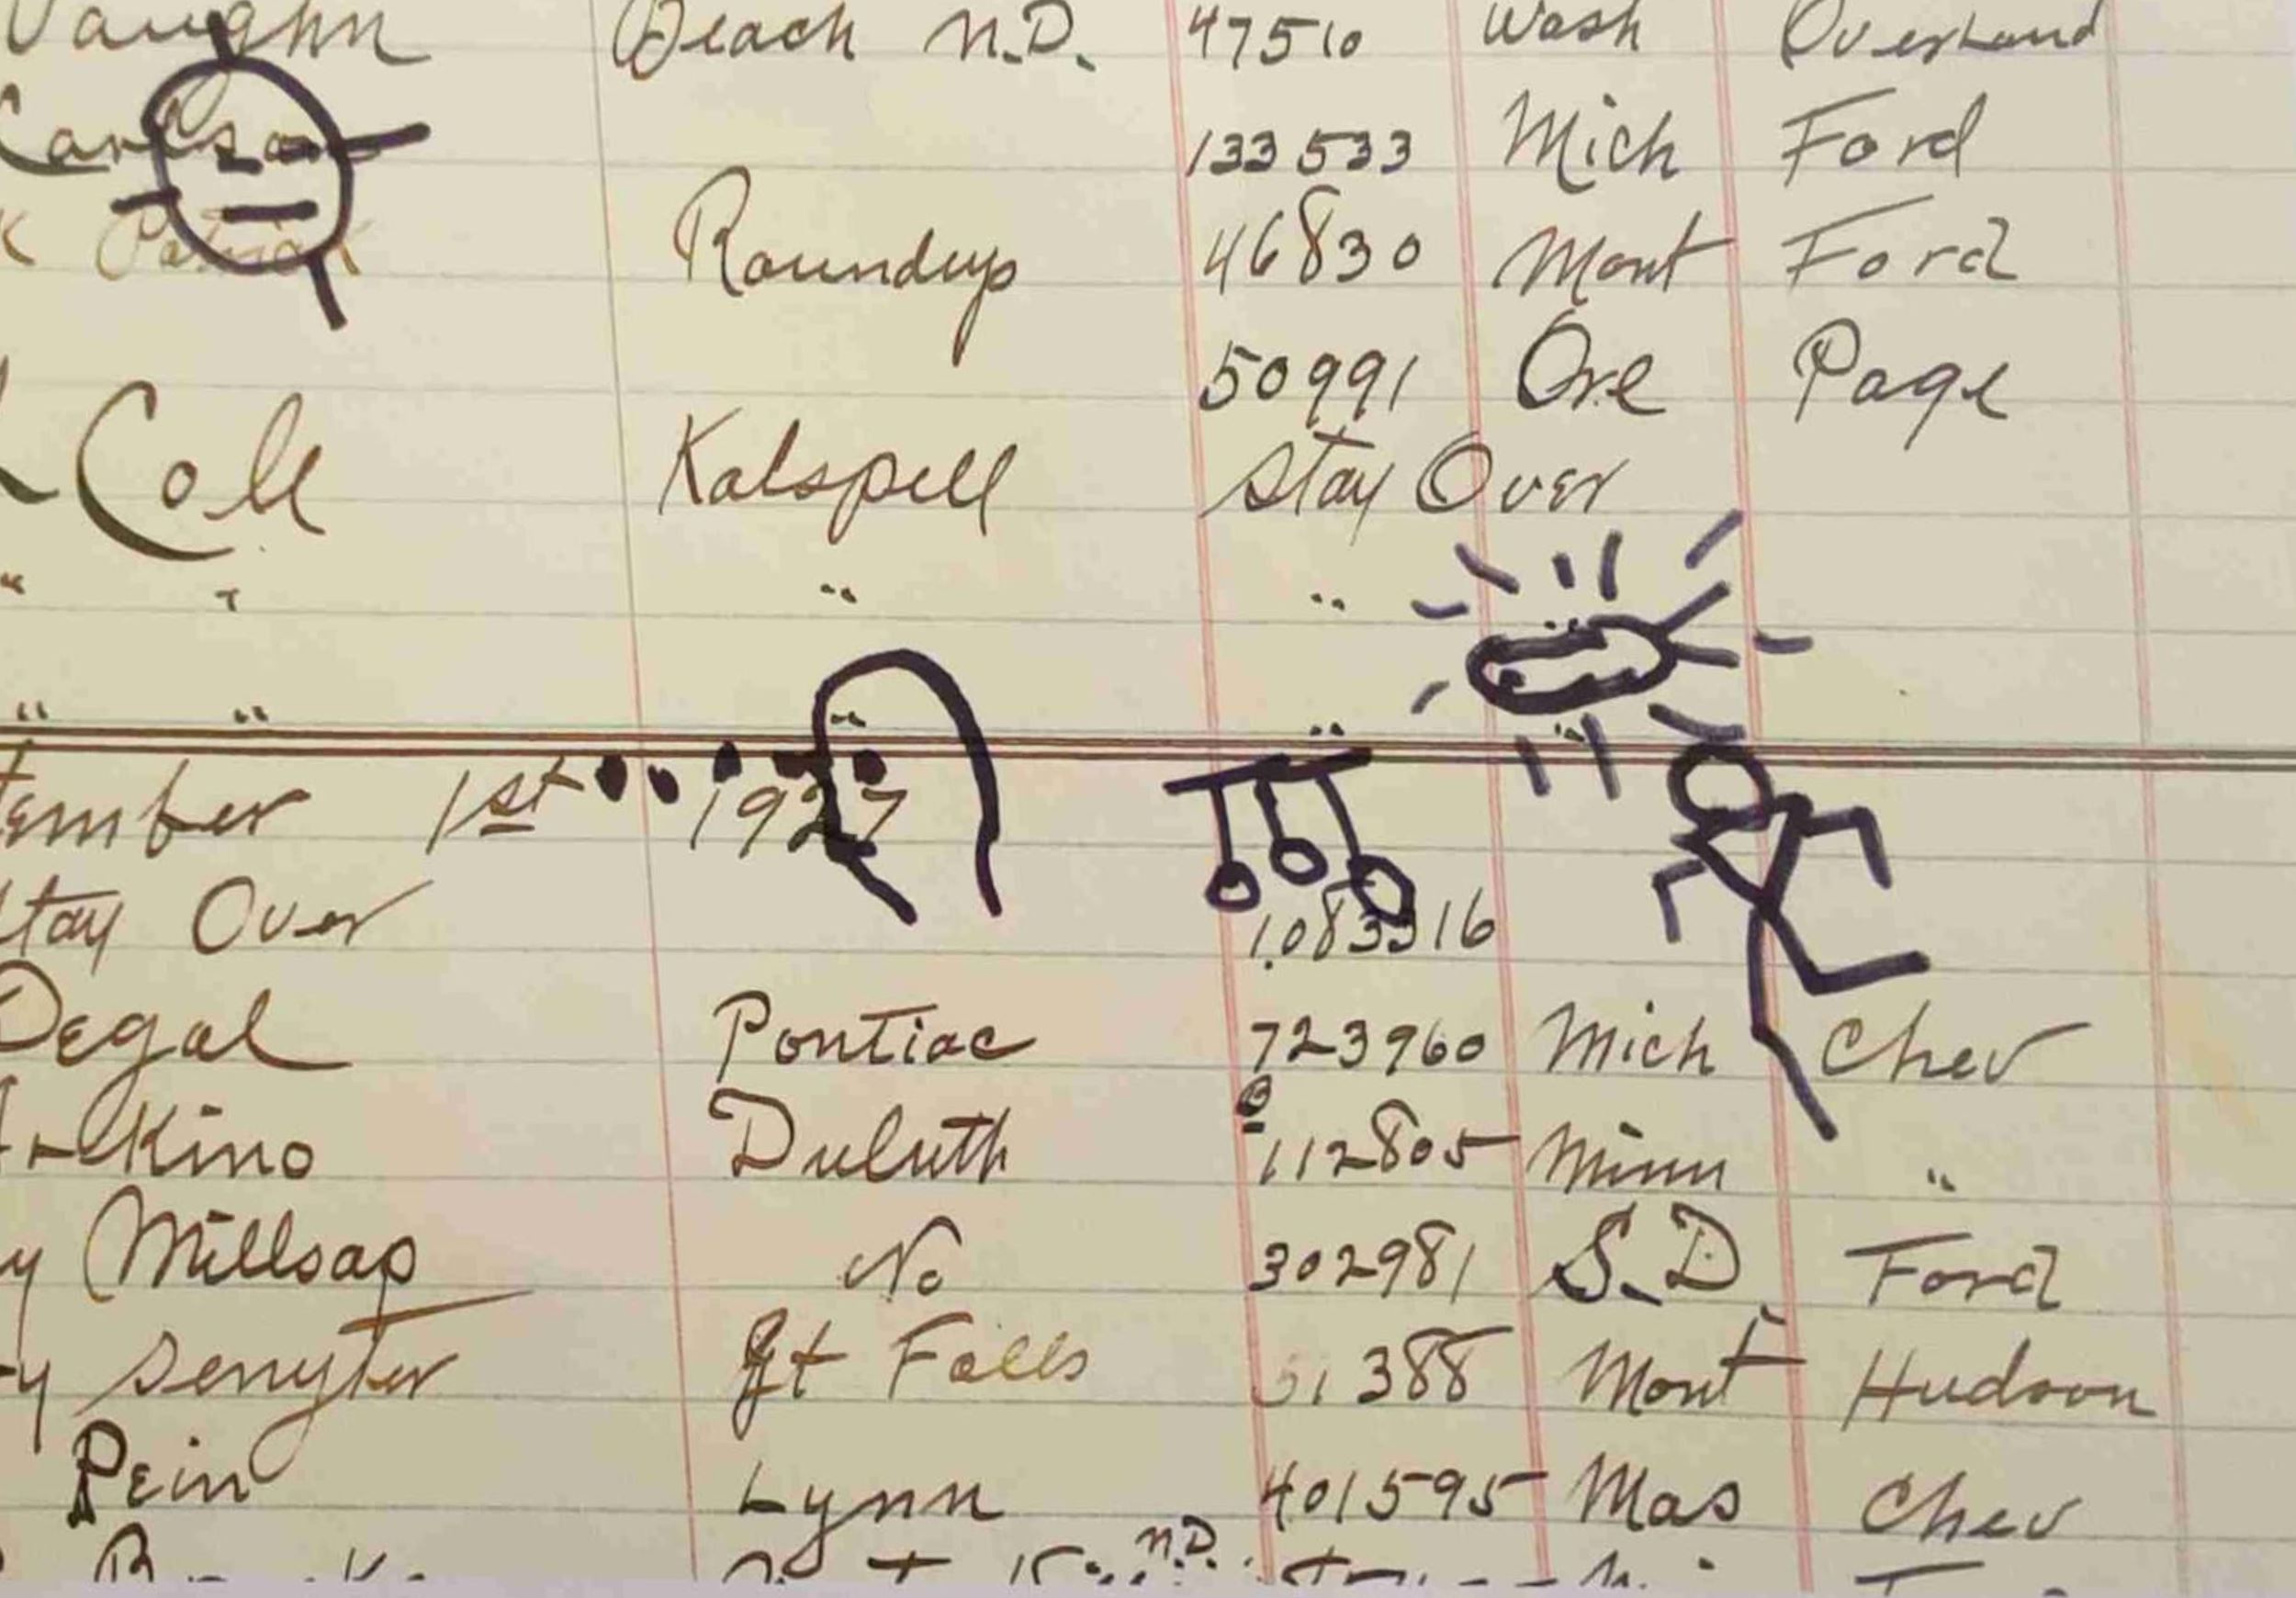 Vaughn Beach N.D. 47510 Wash Overland
Carlson 133533 Mich Ford
K Patrick Roundup 46830 Mont Ford
50991 Ore Page
Cole Kalspell Stay Over
" " " "
" " " " "
tember 1st 1927
Stay Over 1083316
Degal Pontiac 723960 Mich Chev
Duluth 112805 Minn "
y Millsap No 302981 S.D. Ford
y Gt Falls 51388 Mont Hudson
Pein Lynn 401595 Mas Chev
N.D.